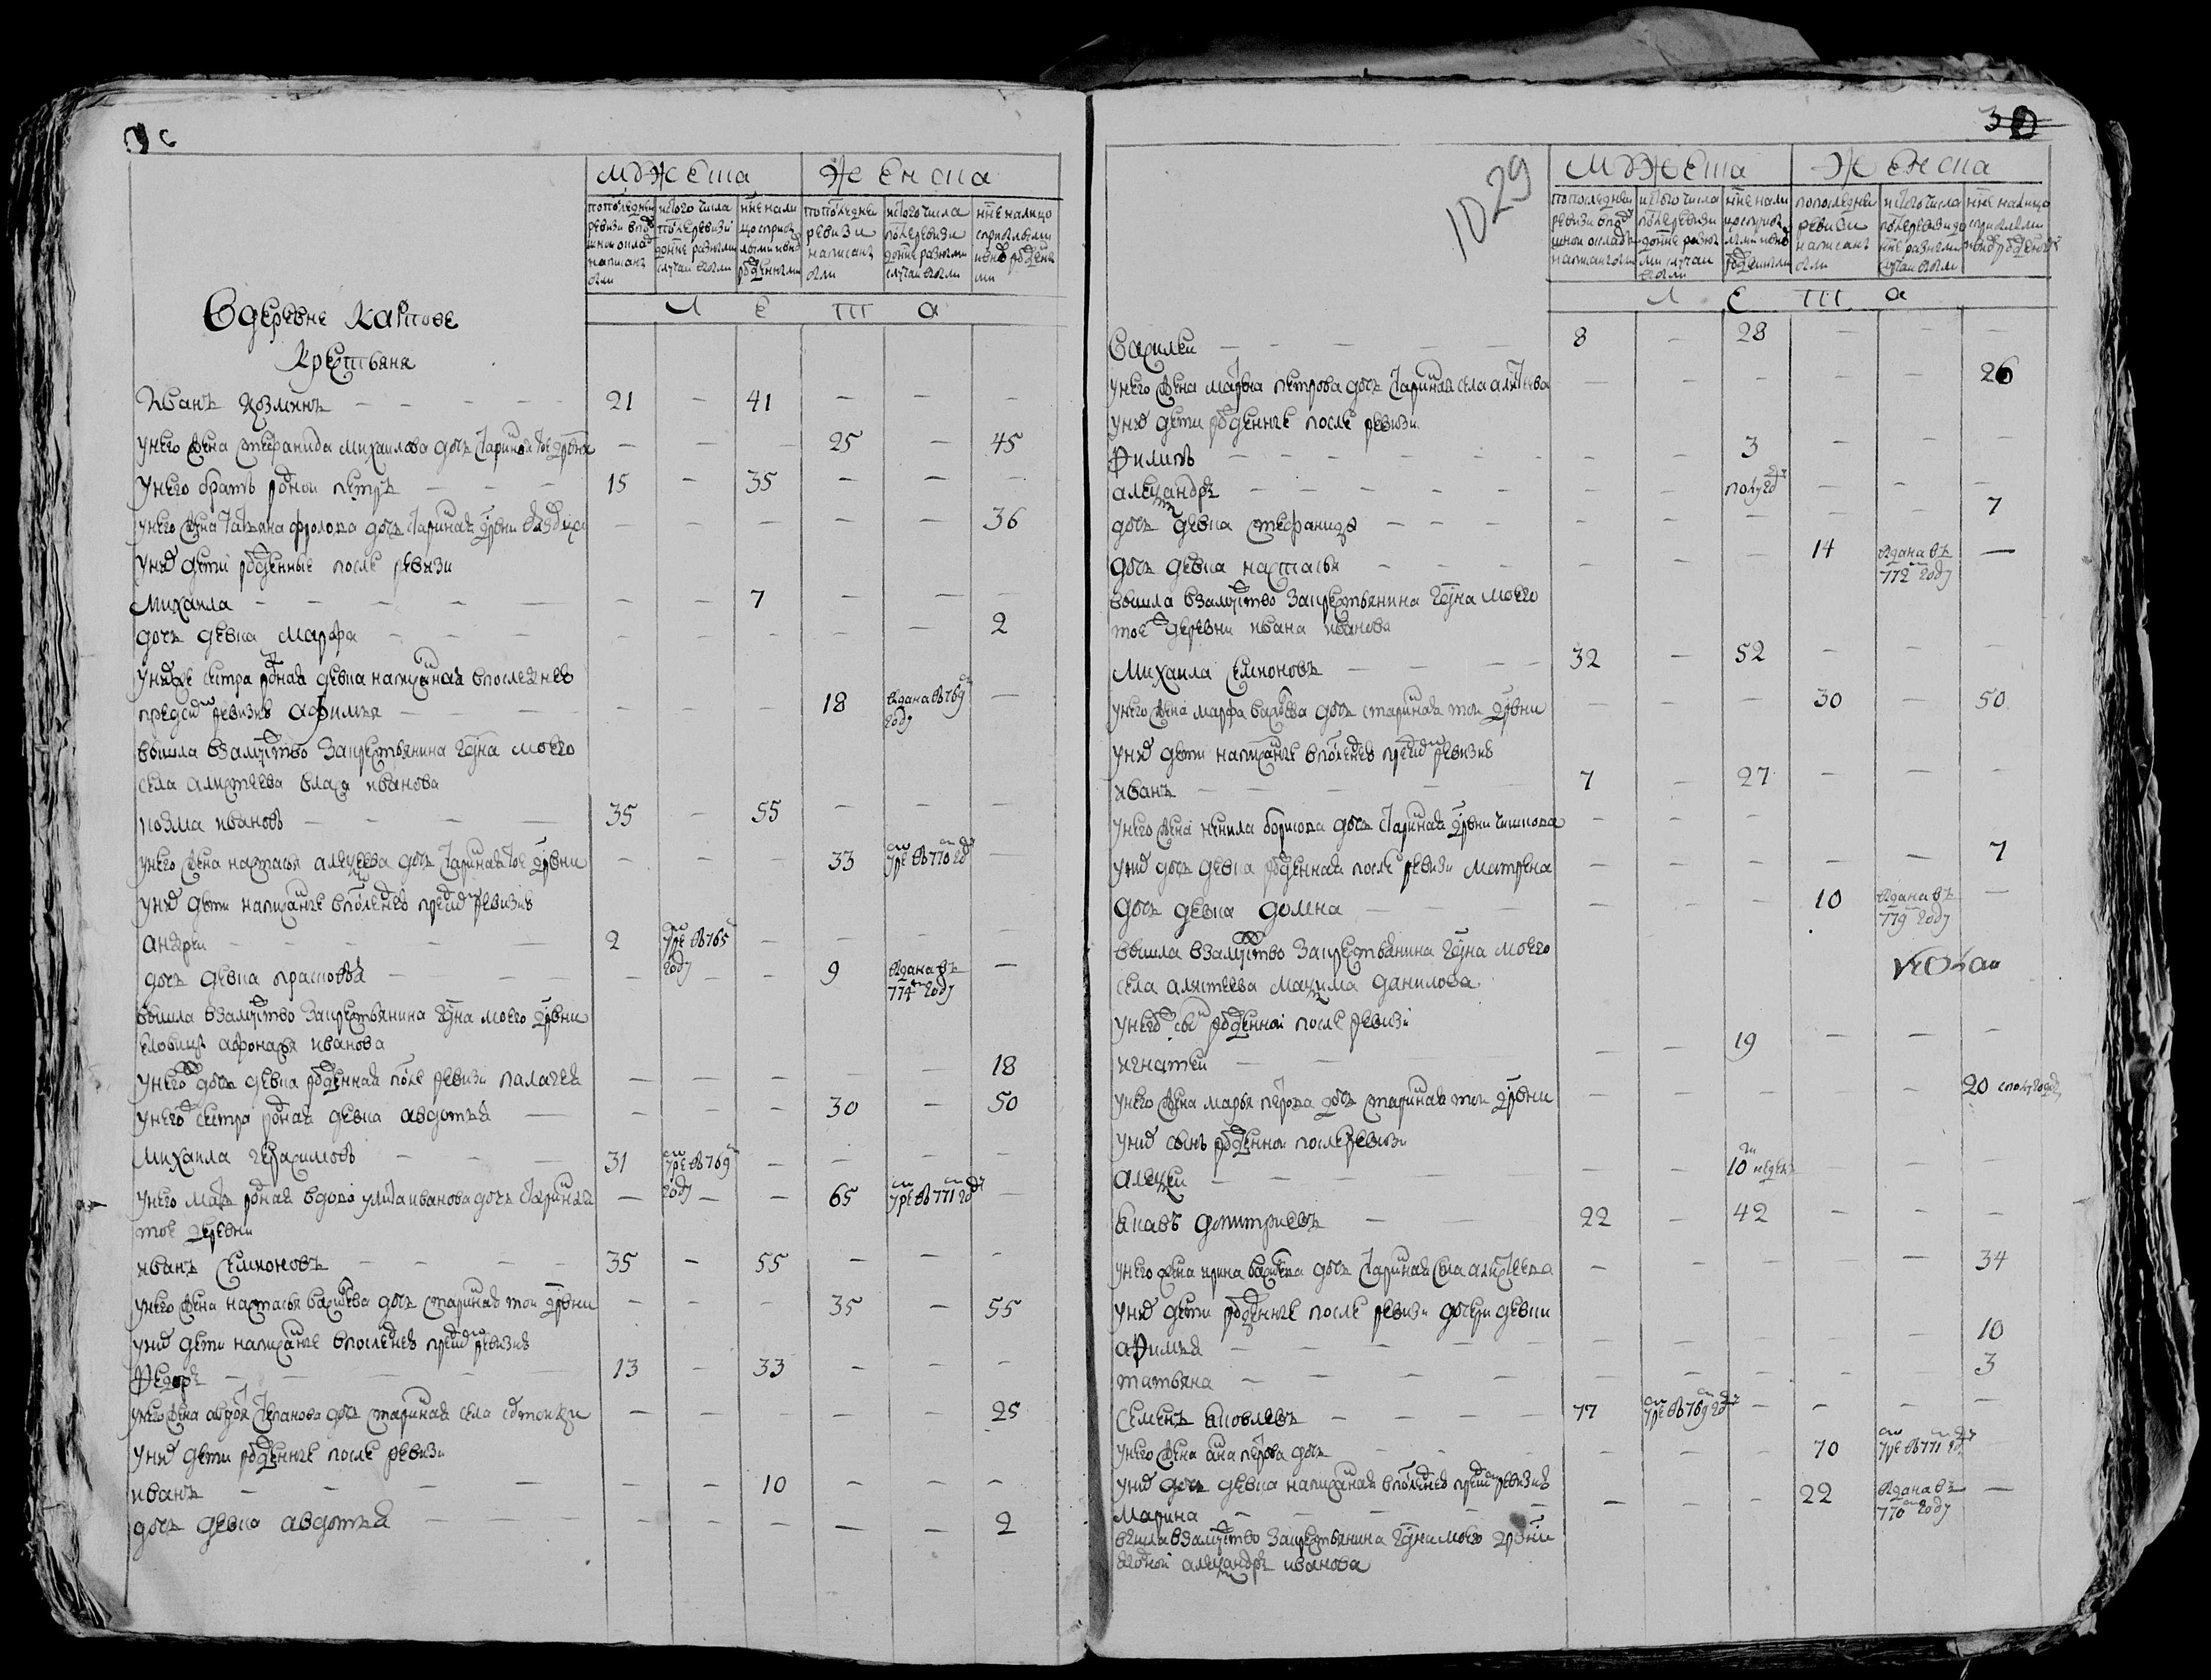 мужеска
женска
по последней ревизии в подушном окладе написаны были
ис того числа после ревизии до ныне разными случаи выбыли
ныне на лицо с прибылыми и вновь рожденными
по последней ревизии написаны были
ис того числа после ревизии до ныне разными случаи выбыли
ныне на лицо с прибылыми и вновь рожденными
л е т а
В деревне
крестьяня
Иванъ Козминъ — 21 — 41 — — —
у него жена Стефанида Михаилова дочь старинная тое дрвни — — — 25 — 45
у него братъ родной Петръ — 15 — 35 — — —
у него жена Татьяна Фролова дочь старинная дрвни — — — — — 36
у них дети рожденные после ревизи
Михаила — — — 7 — — —
дочь девка Марфа — — — — — — 2
у них же сестра родная девка написанная в последнеѣ
пред сию ревизиѣ Афимья — — — — 18 выдана въ 769 году —
вышла в замужство за крестьянина г͠дна моего
села Алистеева Власа Иванова
Козма Ивановъ — 35 — 55 — — —
у него жена Настасья Алексеева дочь старинная тое дрвни — — — 33 умре въ 770 году —
у них дети написанные в последнеѣ пред сию ревизиѣ
Андреи — 2 умре въ 765 году — — — —
дочь девка Прасковья — — — — 9 выдана въ 774 году —
вышла в замужство за крестьянина г͠дна моего дрвни
Еловица Афонасья Иванова
у него ж дочь девка рожденная после ревизи Палагея — — — — — 18
у него ж сестра родная девка Авдотья — — — — 30 — 50
Михаила Герасимовъ — 31 умре въ 769 году — — — — —
у него мать родная вдова Улита Иванова дочь старинная — — — 65 умре въ 771 году —
тое деревни
Иванъ Семионовъ — 35 — 55 — — —
у него жена Настасья Васильева дочь старинная тои дрвни — — — 35 — 55
у них дети написанные в последнеѣ пред сию ревизиѣ
Федоръ — 13 — 33 — — —
у него жена Авдотья Степанова дочь старинная села — — — — — 25
у них дети рожденные после ревизи
Иванъ — — — 10 — — —
дочь девка Авдотья — — — — — — 2
30
1029
мужеска
женска
по последней ревизии в подушном окладе написаны были
ис того числа после ревизии до ныне разными случаи выбыли
ныне на лицо с прибылыми и вновь рожденными
по последней ревизии написаны были
ис того числа после ревизии до ныне разными случаи выбыли
ныне на лицо с прибылыми и вновь рожденными
л е т а
Василеи — 8 — 28 — — —
у него жена Марфа Петрова дочь старинная села Алистеева — — — — — 26
у них дети рожденные после ревизи
Филипъ — — — 3 — — —
Александръ — — — полугод — — —
дочь девка Стефанида — — — — — — 7
дочь девка Настасья — — — — 14 выдана въ 772 году —
вышла в замужство за крестьянина г͠дна моего
тое ж деревни Ивана Иванова
Михаила Семионовъ — 32 — 52 — — —
у него жена Марфа Васильева дочь старинная тои дрвни — — — 30 — 50
у них дети написанные в последнеѣ пред сию ревизиѣ
Иванъ — 7 — 27 — — —
у него жена Ненила Борисова дочь старинная дрвни — — —
у них дочь девка рожденная после ревизи Матрена — — — — — 7
дочь девка Домна — — — — 10 выдана въ 779 году —
вышла в замужство за крестьянина г͠дна моего
села Алистеева Максима Данилова
у него ж сын рожденной после ревизи
Игнатеи — — — 19 — — —
у него жена Марья Петрова дочь старинная тои дрвни — — — — — 20 с полугодом
у них сынъ рожденнои после ревизи
Алексеи — — — 10 недель — — —
Яковъ Дмитриевъ — 22 — 42 — — —
у него жена Ирина Васильева дочь старинная села Алистеева — — — — — 34
у них дети рожденные после ревизи дочери девки
Афимья — — — — — — 10
Татьяна — — — — — — 3
Семенъ Яковлевъ — 77 умре въ 769 году — — — —
у него жена Анна Петрова дочь — — — — 70 умре въ 771 году
у них дочь девка написанная в последнеѣ пред сию ревизиѣ
Марина — — — — 22 выдана въ 770 году —
вышла в замужство за крестьянина г͠дна моего дрвни
Александръ Иванова